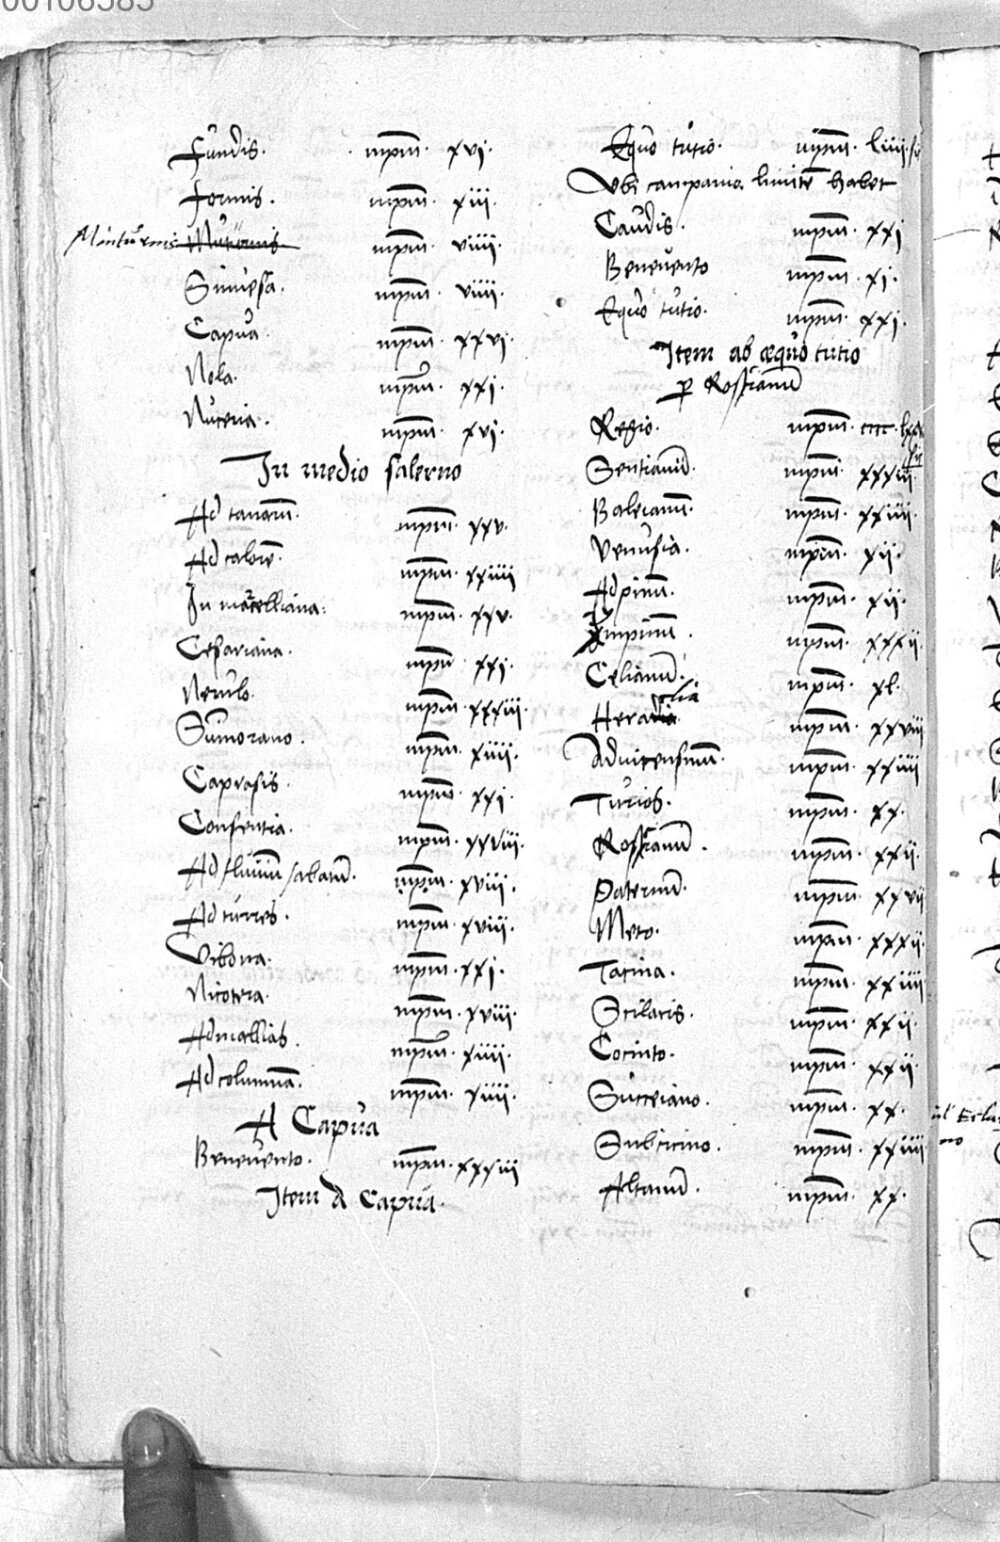 00106585
Fundis. mpm. xvi.
Formis. mpm. xiii.
Minturnis mpm. viiii.
Sinuesa. mpm. viiii.
Capua. mpm. xxvi.
Nola. mpm. xxi.
Nuceria. mpm. xvi.
In medio salerno
Ad tanarum. mpm. xxv.
Ad calorē. mpm. xxiiii
In marcelliana: mpm. xxv.
Cesariana. mpm. xxi.
Nerulo. mpm. xxxiii.
Sumorano. mpm. xiiii.
Caprasis. mpm. xxi.
Consentia. mpm. xxviii.
Ad fluuiū sabatū. mpm. xviii.
Ad turres. mpm. xviii.
Vibona. mpm. xxi.
Nicotera. mpm. xviii.
Admallias. mpm. xiiii.
Ad columnā. mpm. xiiii.
A Capua
Beneuento. mpm. xxxiii
Item A Capua.
Equo tutio. mpm. liiii.
Vbi campania limitē habet
Caudis. mpm. xxi
Beneuento mpm. xi.
Equo tutio. mpm. xxi.
Item ab æquo tutio
p Rosianū
Regio. mpm. cccc.
Sentianū. mpm. xxxiii
Baleianū. mpm. xxiiii
Venusia. mpm. xii.
Adpinū. mpm. xii.
mpm. xxxii.
Celianū. mpm. xl.
Heraclia mpm. xxviii
Aduicensimū. mpm. xxiiii
Turios. mpm. xx.
Rossianū. mpm. xxii
Paternū. mpm. xxvii
Meto. mpm. xxxii
Tacina. mpm. xxiiii
Scilacis. mpm. xxii
Cocinto. mpm. xxii
Succeiano. mpm. xx.
Subsicino. mpm. xxiiii
Altanū. mpm. xx.